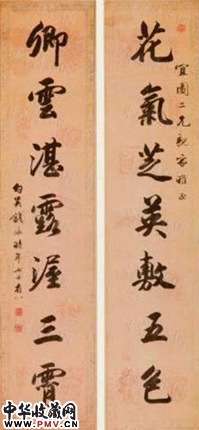 宜園二兄親家雅正
花氣芝英敷五色
卿雲湛露渥三霄
勾吳錢泳時年七十有八
中华收藏网
WWW.PMV.CN